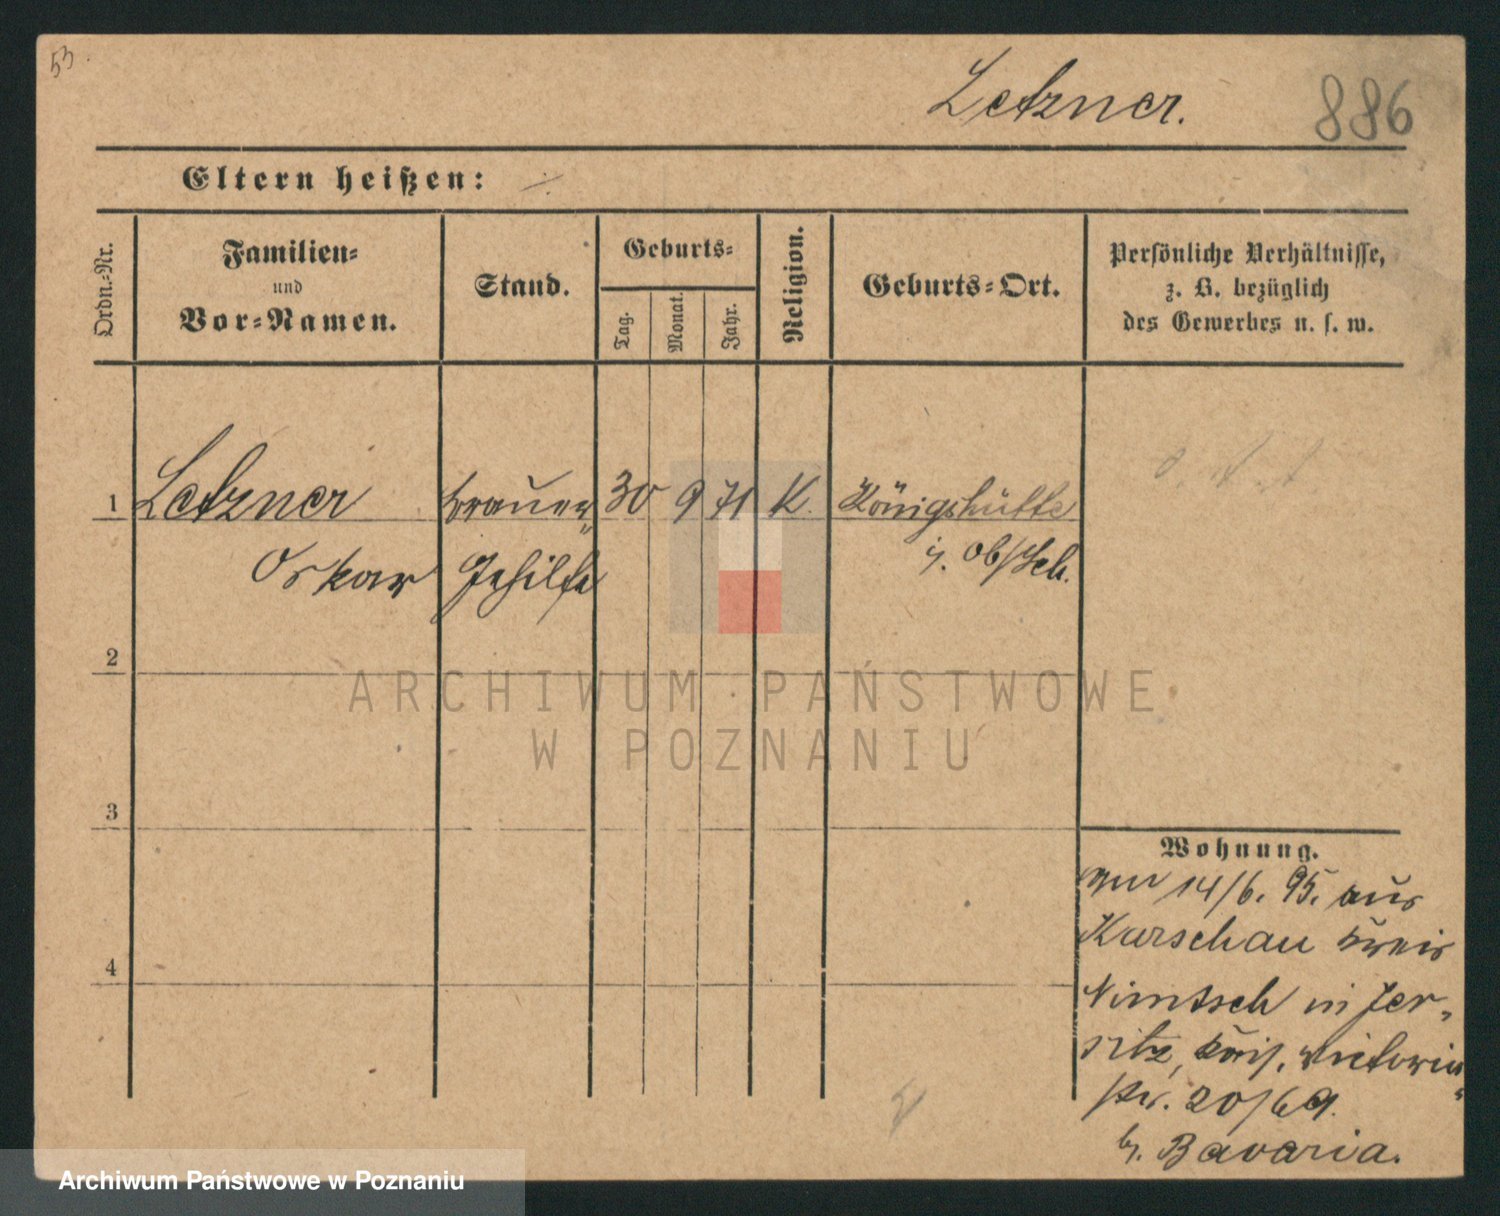 53.
Letzner.
886
Eltern heißen:
Ordn.-Nr.
Familien-
und
Vor-Namen.
Stand.
Geburts-
Tag.
Monat.
Jahr.
Religion.
Geburts-Ort.
Persönliche Verhältnisse,
z. B. bezüglich
des Gewerbes u. s. w.
1 Letzner Brauer- 30 9 71 K. Königshütte
Oskar Gehilfe i. Ob/Sch.
2
3
4
Wohnung.
14/6. 95. aus
Karschau Kreis
Nimtsch in Jer-
sitz, Victoria-
str. 20/69.
b. Bavaria.
ARCHIWUM PAŃSTWOWE
W POZNANIU
Archiwum Państwowe w Poznaniu